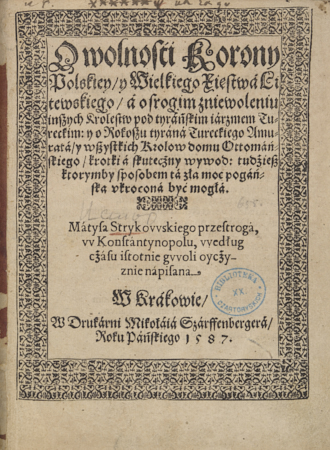 O wolności Korony
Polskiey / y Wielkiego Xięstwá Li
tewskiego / á o srogim zniewoleniu
inszych Krolestw pod tyráńskim iárzmem Tu-
reckim: y o Rokoszu tyráná Tureckiego Amu-
ratá / y wszystkich Krolow domu Ottomáń-
skiego / krotki á skuteczny wywod: tudzież
ktorymby sposobem tá zła moc pogáń-
ska vkrocona być mogłá.
Mátysa Strykovvskiego przestrogá,
vv Konstántynopolu, vvedług
cżásu istotnie gvvoli oycży-
znie nápisána.
W Krákowie /
W Drukárni Mikołáiá Szárffenbergerá /
Roku Páńskiego 1587.
BIBLIOTEKA
XX.
CZARTORYSKICH